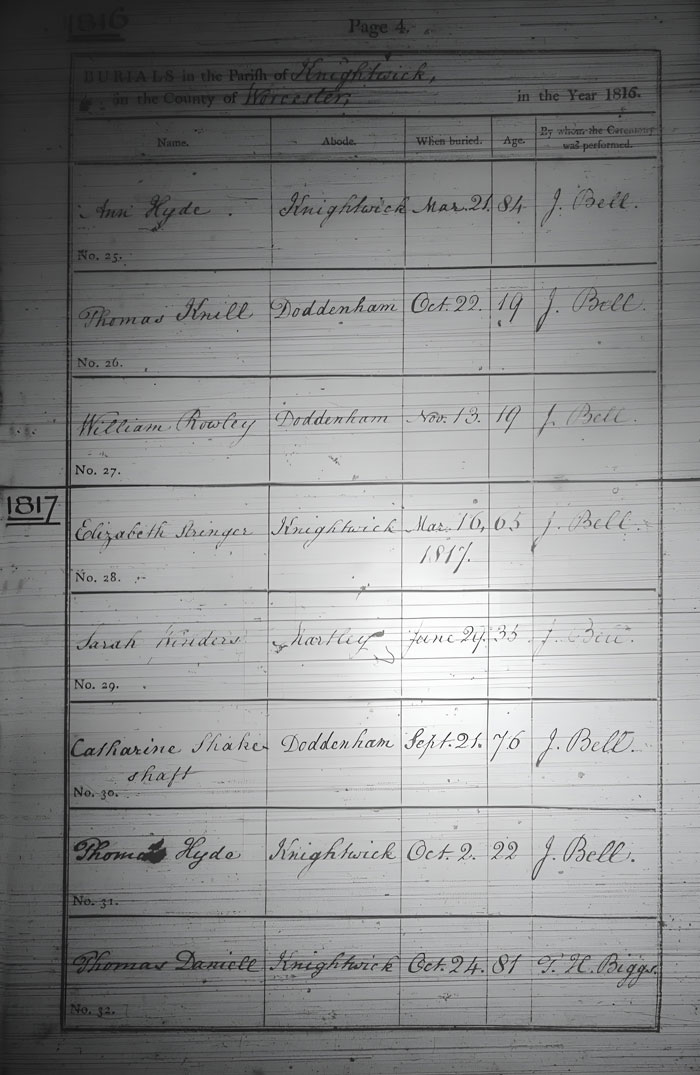 1816
Page 4.
BURIALS in the Parish of Knightwick,
in the County of Worcester, in the Year 1816.
Name. Abode. When buried. Age. By whom the Ceremony was performed.
Ann Hyde Knightwick Mar. 21. 84 J. Bell.
No. 25.
Thomas Knill Doddenham Oct. 22. 19 J. Bell.
No. 26.
William Rowley Doddenham Nov. 13. 19 J. Bell.
No. 27.
1817
Elizabeth Stringer Knightwick Mar. 16, 65 J. Bell.
1817.
No. 28.
Sarah Winders Martley June 29. 35 J. Bell.
No. 29.
Catharine Shake- Doddenham Sept. 21. 76 J. Bell.
shaft
No. 30.
Thomas Hyde Knightwick Oct. 2. 22 J. Bell.
No. 31.
Thomas Daniell Knightwick Oct. 24. 81 T. H. Biggs.
No. 32.